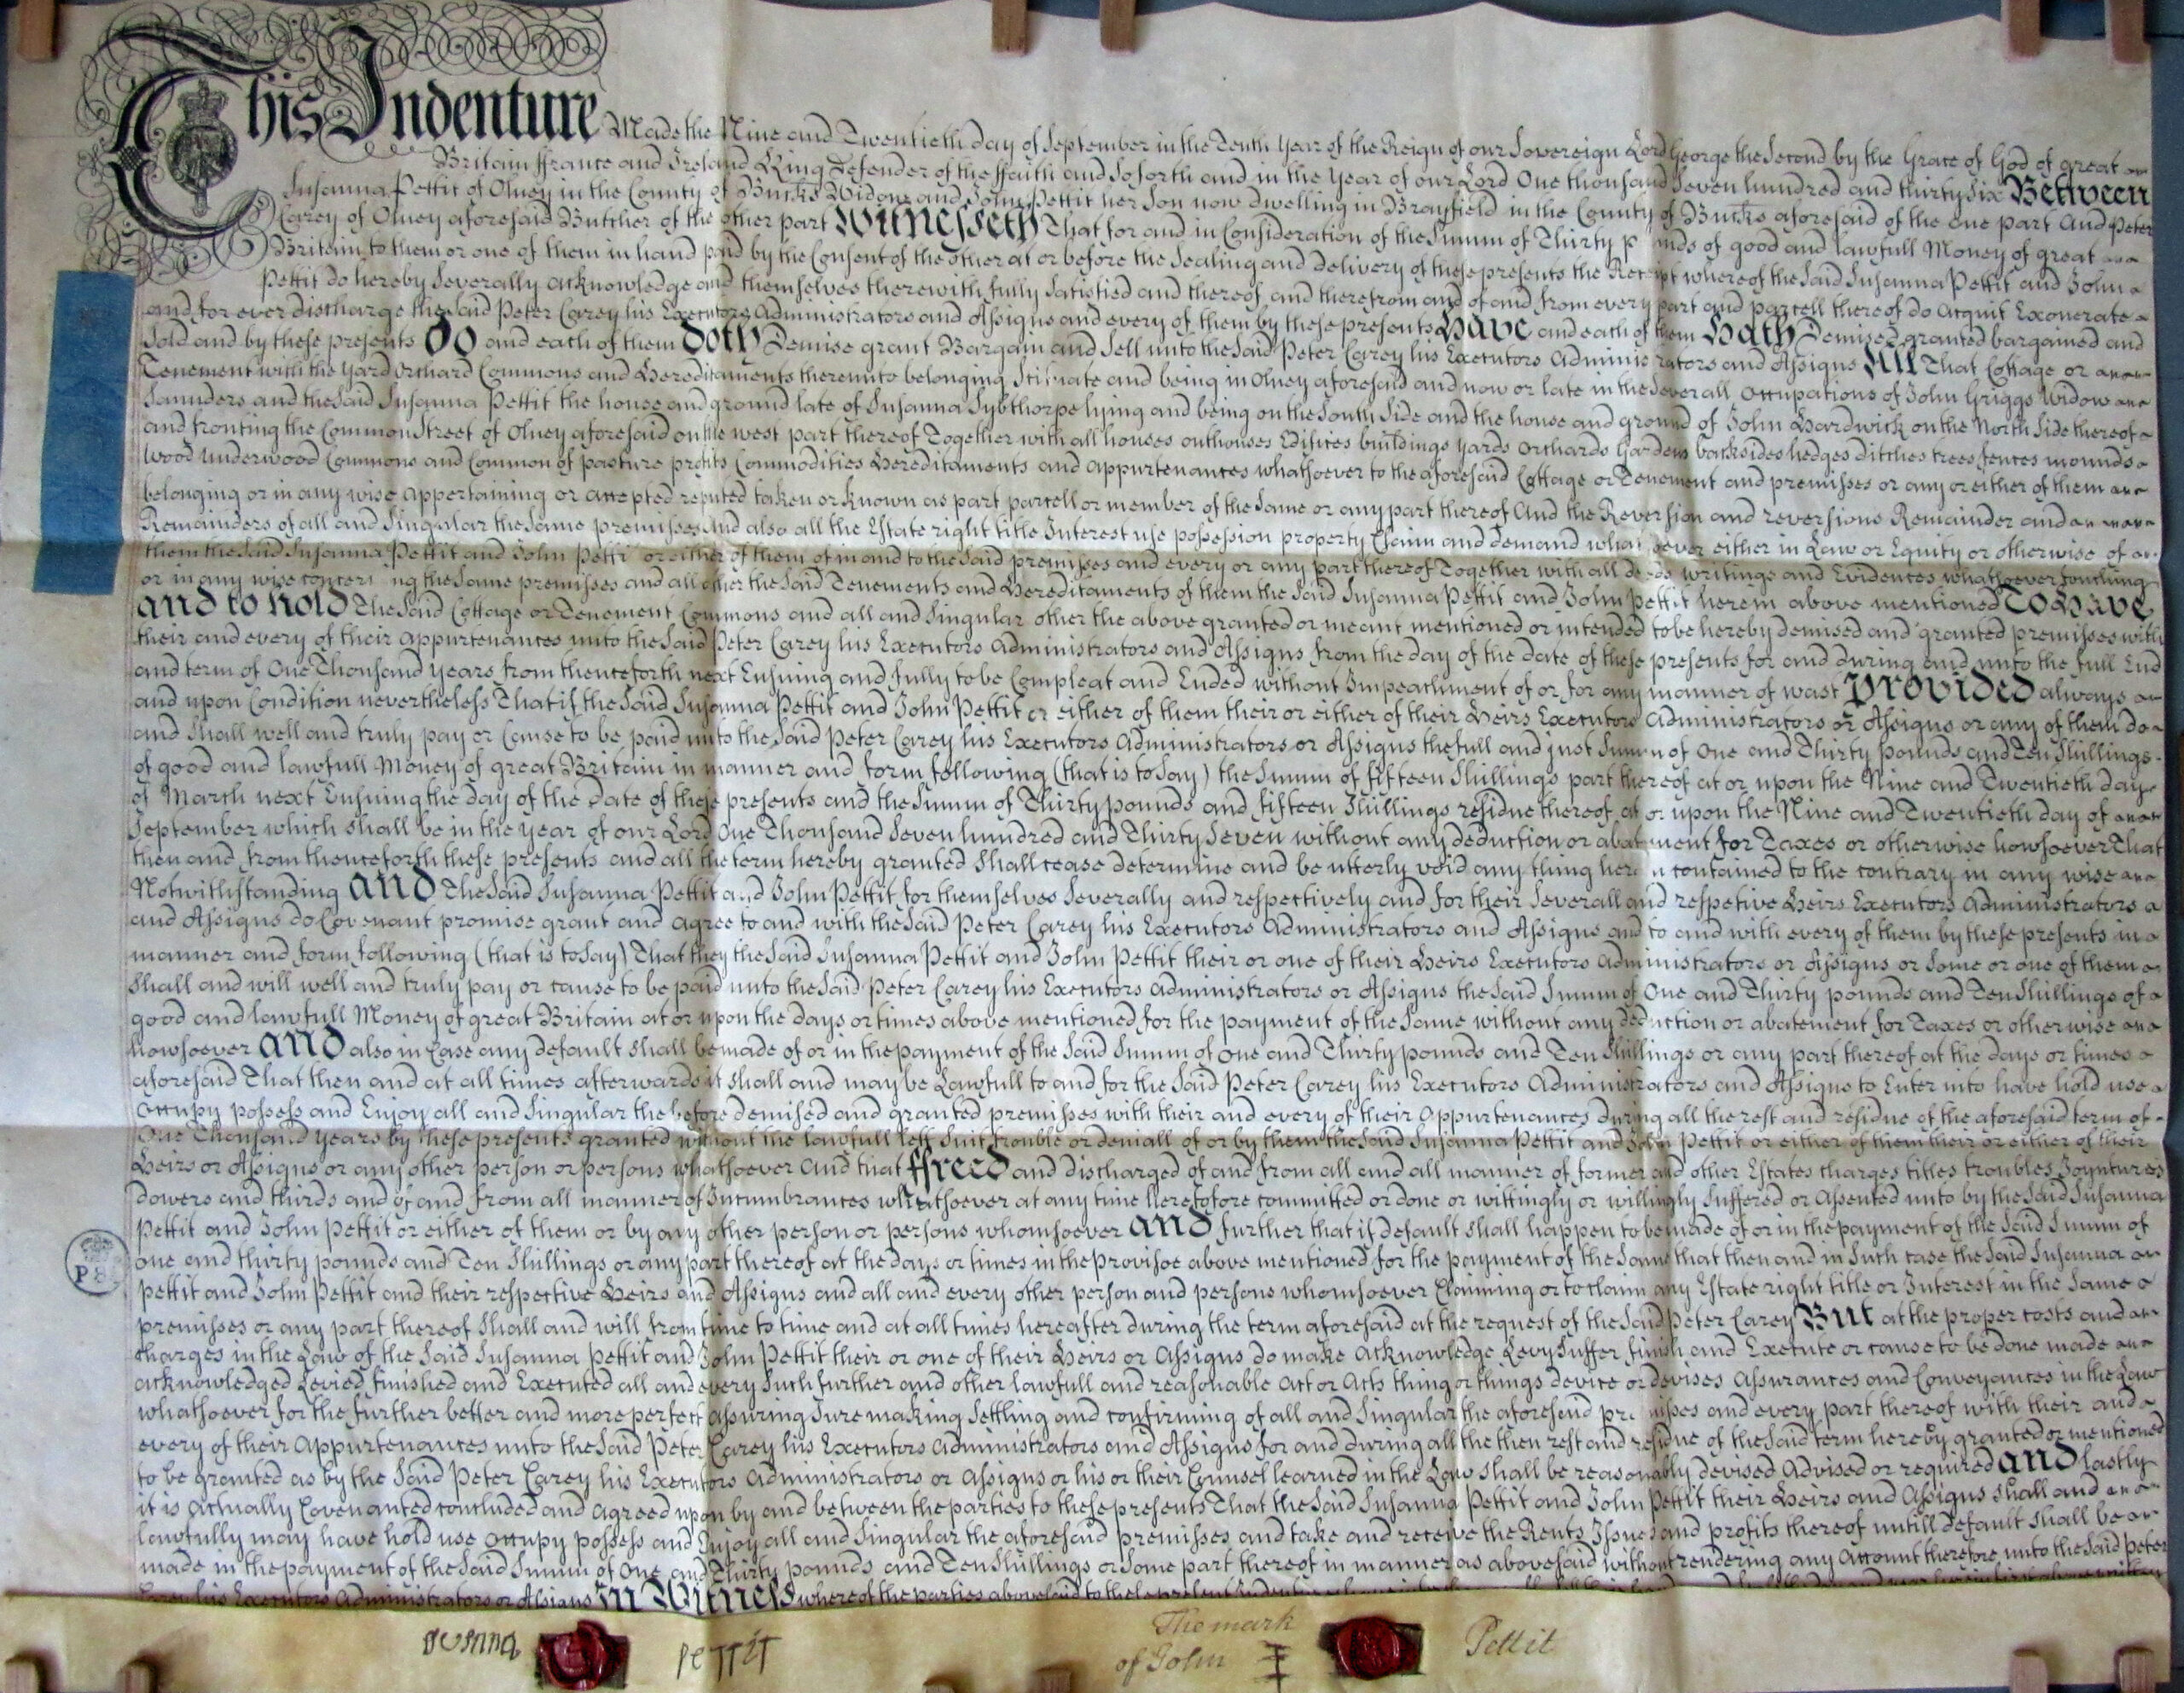 This Indenture Made the Nine and Twentieth day of September in the Tenth Year of the Reign of our Sovereign Lord George the Second by the Grace of God of great
Britain ffrance and Ireland King Defender of the ffaith and so forth and in the Year of our Lord One thousand Seven hundred and thirty six Between
Susanna Pettit of Olney in the County of Bucks Widow and John Pettit her Son now dwelling in Brayfield in the County of Bucks aforesaid of the one part And Peter
Carey of Olney aforesaid Butcher of the other part Witnesseth That for and in Consideration of the Summ of Thirty p nds of good and lawfull Money of great
Britain to them or one of them in hand paid by the Consent of the other at or before the Sealing and delivery of these presents the Receipt whereof the Said Susanna Pettit and John
Pettit do hereby Severally acknowledge and themselves therewith fully Satisfied and thereof and therefrom and of and from every part and parcell thereof do Acquit Exonerate
and for ever discharge the Said Peter Carey his Executors Administrators and Assigns and every of them by these presents Have and each of them Hath Demised granted bargained and
Sold and by these presents Do and each of them Doth Demise grant Bargain and Sell unto the Said Peter Carey his Executors Adminis rators and Assigns All That Cottage or
Tenement with the Yard Orchard Commons and Hereditaments thereunto belonging Scituate and being in Olney aforesaid and now or late in the Severall Occupations of John Griggs Widow
Saunders and the Said Susanna Pettit the house and ground late of Susanna Sybthorpe lying and being on the South Side and the house and ground of John Hardwick on the North Side thereof
and fronting the Common Street of Olney aforesaid on the west part thereof Together with all houses outhouses Edifices buildings yards Orchards Gardens backsides hedges ditches trees fences mounds
Wood Underwood Commons and Common of pasture profits Commodities Hereditaments and appurtenances whatsoever to the aforesaid Cottage or Tenement and premisses or any or either of them
belonging or in any wise appertaining or accepted reputed taken or known as part parcell or member of the Same or any part thereof And the Reversion and reversions Remainder and
Remainders of all and Singular the Same premisses And also all the Estate right title Interest use possession property Claim and demand what soever either in Law or Equity or otherwise of
them the Said Susanna Pettit and John Petti or either of them of in and to the Said premisses and every or any part thereof Together with all deeds writings and Evidences whatsoever touching
or in any wise concerning the Same premisses and all other the Said Tenements and Hereditaments of them the Said Susanna Pettit and John Pettit herein above mentioned To Have
and to hold The Said Cottage or Tenement Commons and all and Singular other the above granted or meant mentioned or intended to be hereby demised and granted premisses with
their and every of their Appurtenances unto the Said Peter Carey his Executors Administrators and Assigns from the day of the date of these presents for and during and unto the full End
and term of One Thousand Years from thenceforth next Ensuing and fully to be Compleat and Ended without Impeachment of or for any manner of wast Provided always
and upon Condition nevertheless That if the Said Susanna Pettit and John Pettit or either of them their or either of their Heirs Executors Administrators or Assigns or any of them do
and Shall well and truly pay or Cause to be paid unto the Said Peter Carey his Executors Administrators or Assigns the full and just Summ of One and Thirty Pounds and Ten Shillings
of good and lawfull Money of great Britain in manner and form following (that is to Say) the Summ of fifteen Shillings part thereof at or upon the Nine and Twentieth day
of March next Ensuing the day of the Date of these presents and the Summ of Thirty pounds and fifteen Shillings residue thereof at or upon the Nine and Twentieth day of
September which Shall be in the year of our Lord One Thousand Seven hundred and Thirty Seven without any deduction or abatement for Taxes or otherwise howsoever That
then and from thenceforth these presents and all the term hereby granted Shall cease determine and be utterly void any thing here n contained to the contrary in any wise
Notwithstanding And The Said Susanna Pettit and John Pettit for themselves Severally and respectively and for their Severall and respetive Heirs Executors Administrators
and Assigns do Covenant promise grant and agree to and with the Said Peter Carey his Executors Administrators and Assigns and to and with every of them by these presents in
manner and form following (that is to Say) That they the Said Susanna Pettit and John Pettit their or one of their Heirs Executors Administrators or Assigns or Some or one of them
Shall and will well and truly pay or cause to be paid unto the Said Peter Carey his Executors Administrators or Assigns the Said Summ of One and Thirty pounds and Ten Shillings of
good and lawfull Money of great Britain at or upon the days or times above mentioned for the payment of the Same without any deduction or abatement for Taxes or otherwise
howsoever And also in Case any default Shall be made of or in the payment of the Said Summ of One and Thirty pounds and Ten Shillings or any part thereof at the days or times
aforesaid That then and at all times afterwards it Shall and may be Lawfull to and for the Said Peter Carey his Executors Administrators and Assigns to Enter into have hold use
Occupy possess and Enjoy all and Singular the before demised and granted premisses with their and every of their Appurtenances during all the rest and residue of the aforesaid term of
One Thousand Years by these presents granted without the lawfull lett Suit trouble or deniall of or by them the Said Susanna Pettit and John Pettit or either of them their or either of their
Heirs or Assigns or any other person or persons whatsoever And that ffreed and discharged of and from all and all manner of former and other Estates charges titles troubles Joyntures
dowers and thirds and of and from all manner of Incumbrances whatsoever at any time heretofore committed or done or wittingly or willingly Suffered or Assented unto by the Said Susanna
Pettit and John Pettit or either of them or by any other person or persons whomsoever And further that if default Shall happen to be made of or in the payment of the Said Summ of
one and thirty pounds and Ten Shillings or any part thereof at the days or times in the Provisoe above mentioned for the payment of the Same that then and in Such case the Said Susanna
Pettit and John Pettit and their respective Heirs and Assigns and all and every other person and persons whomsoever Claiming or to claim any Estate right title or Interest in the Same
premisses or any part thereof Shall and will from time to time and at all times hereafter during the term aforesaid at the request of the Said Peter Carey But at the proper costs and
charges in the Law of the Said Susanna Pettit and John Pettit their or one of their Heirs or Assigns do make acknowledge Levy Suffer finish and Execute or cause to be done made
acknowledged Levied finished and Executed all and every Such further and other lawfull and reasonable act or Acts thing or things device or devises Assurances and Conveyances in the Law
whatsoever for the further better and more perfect assuring Suremaking Settling and confirming of all and Singular the aforesaid pre isses and every part thereof with their and
every of their Appurtenances unto the Said Peter Carey his Executors Administrators and Assigns for and during all the then rest and residue of the Said term hereby granted or mentioned
to be granted as by the Said Peter Carey his Executors Administrators or Assigns or his or their Counsel learned in the Law Shall be reasonably devised Advised or required And lastly
it is Actually Covenanted concluded and agreed upon by and between the parties to these presents That the Said Susanna Pettit and John Pettit their Heirs and Assigns Shall and
lawfully may have hold use Occupy possess and Enjoy all and Singular the aforesaid premisses and take and receive the Rents Issues and profits thereof untill default Shall be
made in the payment of the Said Summ of One and Thirty pounds and Ten Shillings or Some part thereof in manner as abovesaid without rendering any Account therefore unto the Said Peter
Carey his Executors Administrators or Assigns In Witness whereof the parties abovesaid to these present Indentures
susnna PeTTiT The mark
of John Pettit